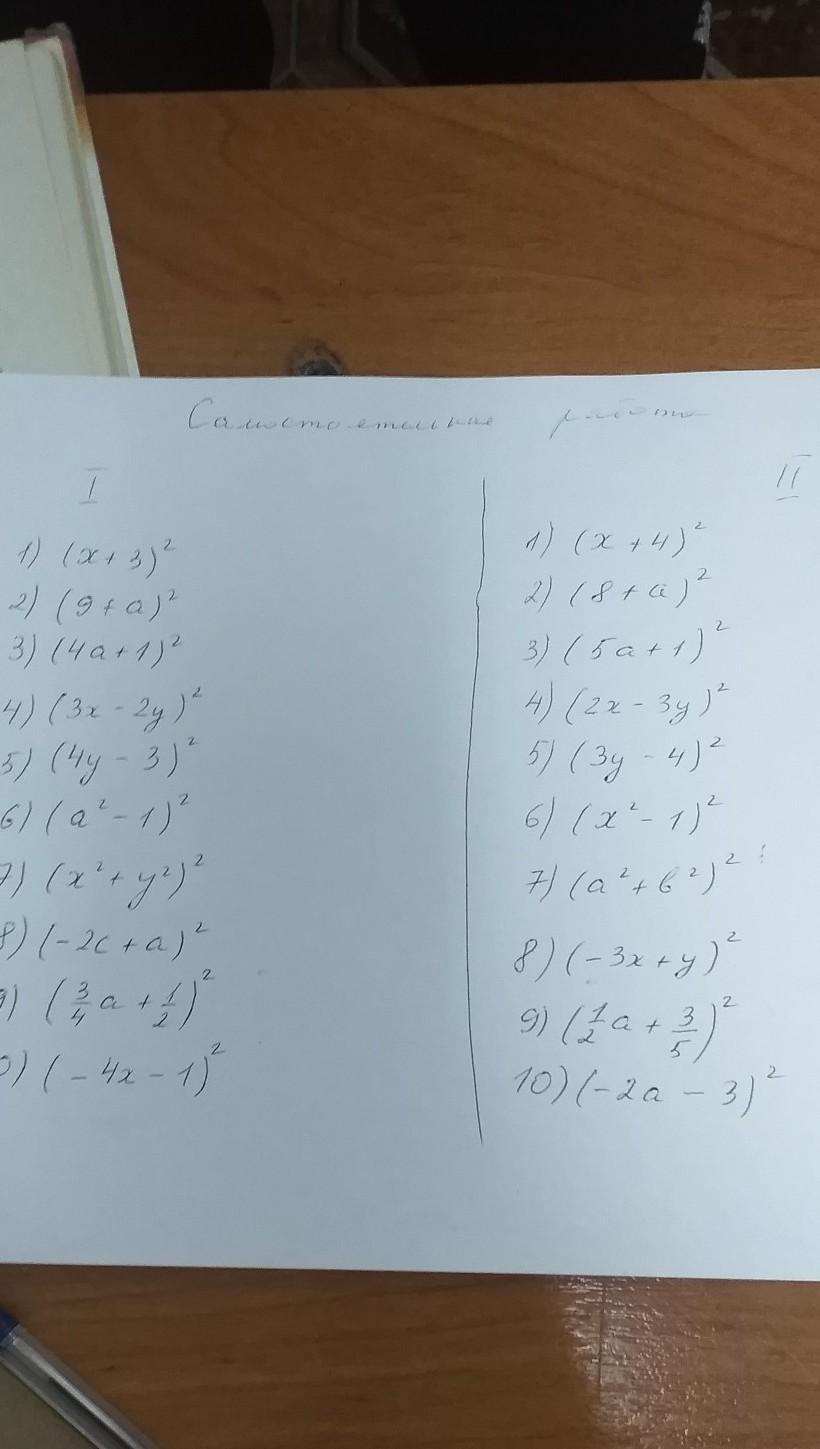 Самостоятельная работа
I
1) (x + 3)²
2) (9 + a)²
3) (4a + 1)²
4) (3x - 2y)²
5) (4y - 3)²
6) (a² - 1)²
7) (x² + y²)²
8) (-2c + a)²
9) (3/4 a + 1/2)²
0) (-4x - 1)²
II
1) (x + 4)²
2) (8 + a)²
3) (5a + 1)²
4) (2x - 3y)²
5) (3y - 4)²
6) (x² - 1)²
7) (a² + b²)²
8) (-3x + y)²
9) (1/2 a + 3/5)²
10) (-2a - 3)²